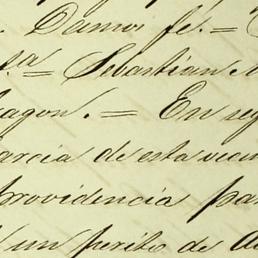 . Damos fé. =
ª = Sebastian
agon. = En
arcia de esta
rovidencia pa
un perito de